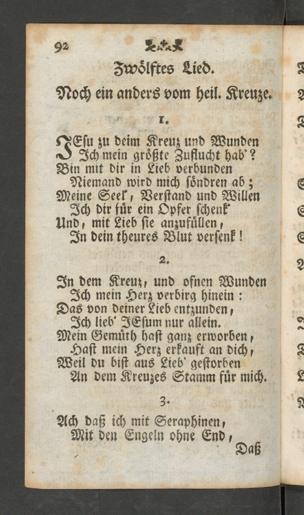 92
Zwölftes Lied.
Noch ein anders vom heil. Kreuze.
1.
JEsu zu deim Kreuz und Wunden
Ich mein größte Zuflucht hab'?
Bin mit dir in Lieb verbunden
Niemand wird mich söndren ab;
Meine Seel', Verstand und Willen
Ich dir für ein Opfer schenk'
Und, mit Lieb sie anzufüllen,
In dein theures Blut versenk!
2.
In dem Kreuz, und ofnen Wunden
Ich mein Herz verbirg hinein:
Das von deiner Lieb entzunden,
Ich lieb' JEsum nur allein.
Mein Gemüth hast ganz erworben,
Hast mein Herz erkauft an dich,
Weil du bist aus Lieb' gestorben
An dem Kreuzes Stamm für mich.
3.
Ach daß ich mit Seraphinen,
Mit den Engeln ohne End,
Daß